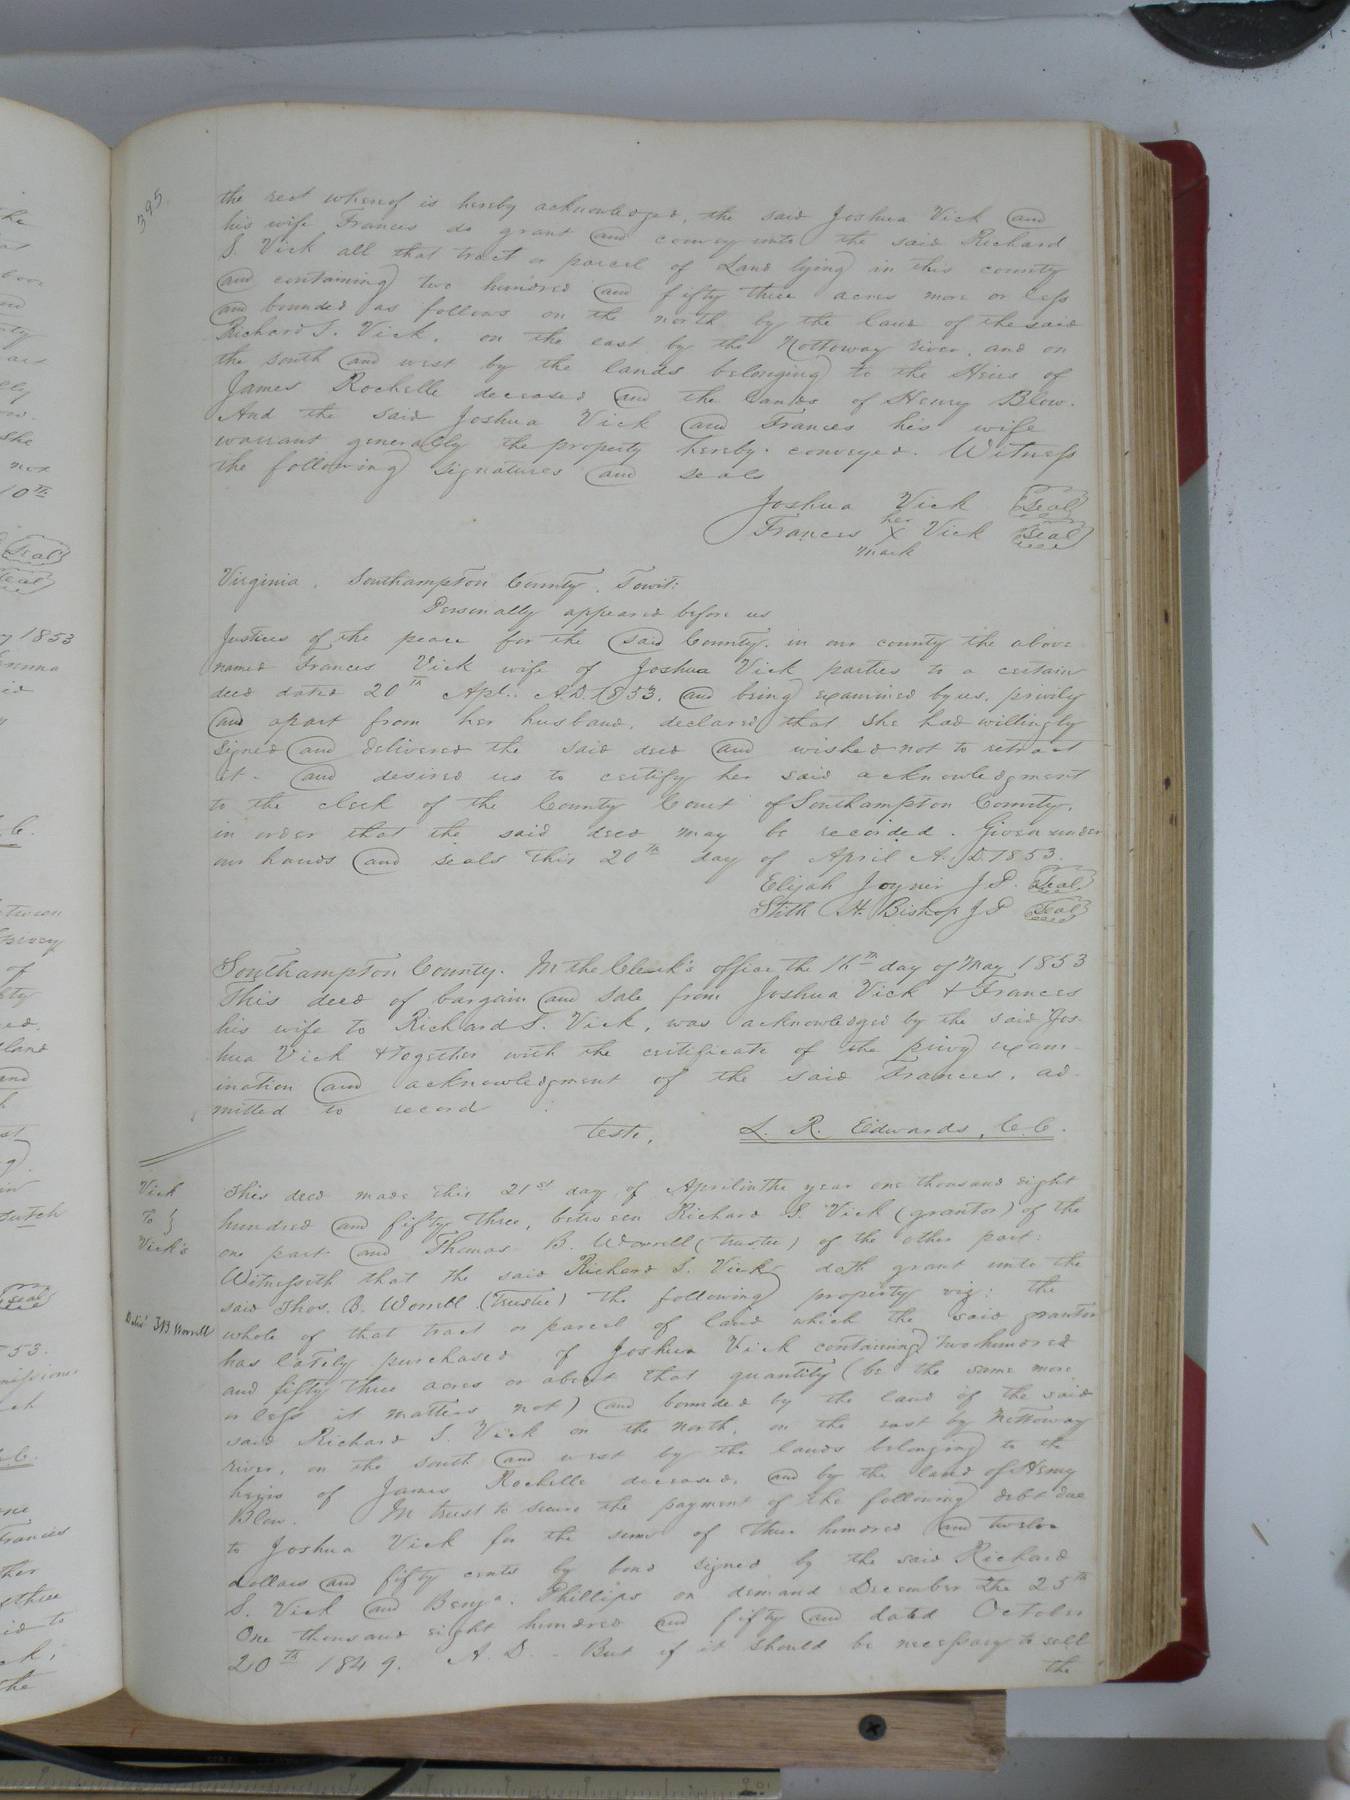 395
the rect whereof is hereby acknowledged, the said Joshua Vick and
his wife Frances do grant and convey unto the said Richard
S. Vick all that tract or parcel of Land lying in this county
and containing two hundred and fifty three acres more or less
and bounded as follows on the north by the land of the said
Richard S. Vick, on the east by the Nottoway river, and on
the south and west by the lands belonging to the Heirs of
James Rochelle deceased and the lands of Henry Blow.
And the said Joshua Vick and Frances his wife
warrant generally the property hereby conveyed. Witness
the following signatures and seals
Joshua Vick Seal
her
Frances X Vick Seal
mark
Virginia. Southampton County. Towit:
Personally appeared before us
Justices of the peace for the said County, in our county the above
named Frances Vick wife of Joshua Vick parties to a certain
deed dated 20th Apl. A.D. 1853, and being examined by us, privily
and apart from her husband, declared that she had willingly
signed and delivered the said deed and wished not to retract
it. and desired us to certify her said acknowledgment
to the clerk of the County Court of Southampton County,
in order that the said deed may be recorded. Given under
our hands and seals this 20th day of April A. D. 1853.
Elijah Joyner J P. Seal
Stith H. Bishop J P Seal
Southampton County. In the Clerk's office the 16th day of May 1853
This deed of bargain and sale from Joshua Vick & Frances
his wife to Richard S. Vick, was acknowledged by the said Jos-
hua Vick & together with the certificate of the privy exam-
ination and acknowledgment of the said Frances, ad-
mitted to record
teste, L. R. Edwards, C.C.
Vick
To }
Vick's
This deed made this 21st day of April in the year one thousand eight
hundred and fifty three, between Richard S. Vick (grantor) of the
one part and Thomas B. Worrell (trustee) of the other part:
Witnesseth that the said Richard S. Vick doth grant unto the
said Thos. B. Worrell (Trustee) the following property viz: the
whole of that tract or parcel of land which the said grantor
has lately purchased of Joshua Vick containing two hundred
and fifty three acres or about that quantity (be the same more
or less it matters not) and bounded by the land of the said
said Richard S. Vick on the north, on the east by Nottoway
river, on the south and west by the lands belonging to the
heirs of James Rochelle deceased, and by the land of Henry
Blow. In trust to secure the payment of the following debt due
to Joshua Vick for the sum of three hundred and twelve
dollars and fifty cents by bond signed by the said Richard
S. Vick and Benja. Phillips on demand December the 25th
One thousand eight hundred and fifty and dated October
20th 1849. A. D. - But if it should be necessary to sell
the